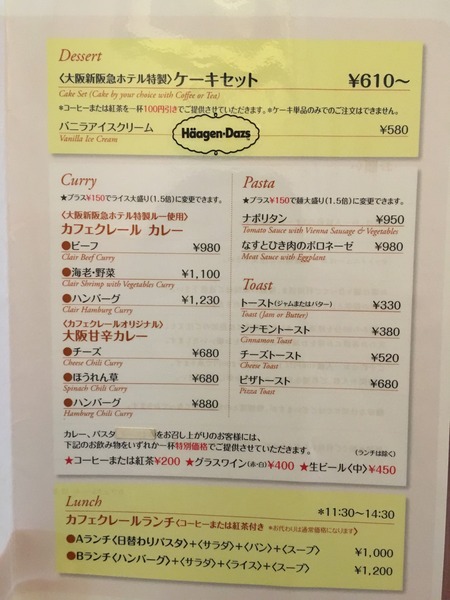 Dessert
〈大阪新阪急ホテル特製〉ケーキセット ¥610〜
Cake Set (Cake by your choice with Coffee or Tea)
*コーヒーまたは紅茶を一杯100円引きでご提供させていただきます。*ケーキ単品のみでのご注文はできません。
バニラアイスクリーム ¥580
Vanilla Ice Cream
Häagen-Dazs
Curry
★プラス¥150でライス大盛り(1.5倍)に変更できます。
〈大阪新阪急ホテル特製ルー使用〉
カフェクレール カレー
●ビーフ ¥980
Clair Beef Curry
●海老・野菜 ¥1,100
Clair Shrimp with Vegetables Curry
●ハンバーグ ¥1,230
Clair Hamburg Curry
〈カフェクレールオリジナル〉
大阪甘辛カレー
●チーズ ¥680
Cheese Chili Curry
●ほうれん草 ¥680
Spinach Chili Curry
●ハンバーグ ¥880
Hamburg Chili Curry
Pasta
★プラス¥150で麺大盛り(1.5倍)に変更できます。
ナポリタン ¥950
Tomato Sauce with Vienna Sausage & Vegetables
なすとひき肉のボロネーゼ ¥980
Meat Sauce with Eggplant
Toast
トースト(ジャムまたはバター) ¥330
Toast (Jam or Butter)
シナモントースト ¥380
Cinnamon Toast
チーズトースト ¥520
Cheese Toast
ピザトースト ¥680
Pizza Toast
カレー、パスタ をお召し上がりのお客様には、
下記のお飲み物をいずれか一杯特別価格でご提供させていただきます。 (ランチは除く)
★コーヒーまたは紅茶¥200 ★グラスワイン(赤・白)¥400 ★生ビール〈中〉¥450
Lunch *11:30〜14:30
カフェクレールランチ〈コーヒーまたは紅茶付き *お代わりは通常価格になります〉
●Aランチ〈日替わりパスタ〉+〈サラダ〉+〈パン〉+〈スープ〉 ¥1,000
●Bランチ〈ハンバーグ〉+〈サラダ〉+〈ライス〉+〈スープ〉 ¥1,200